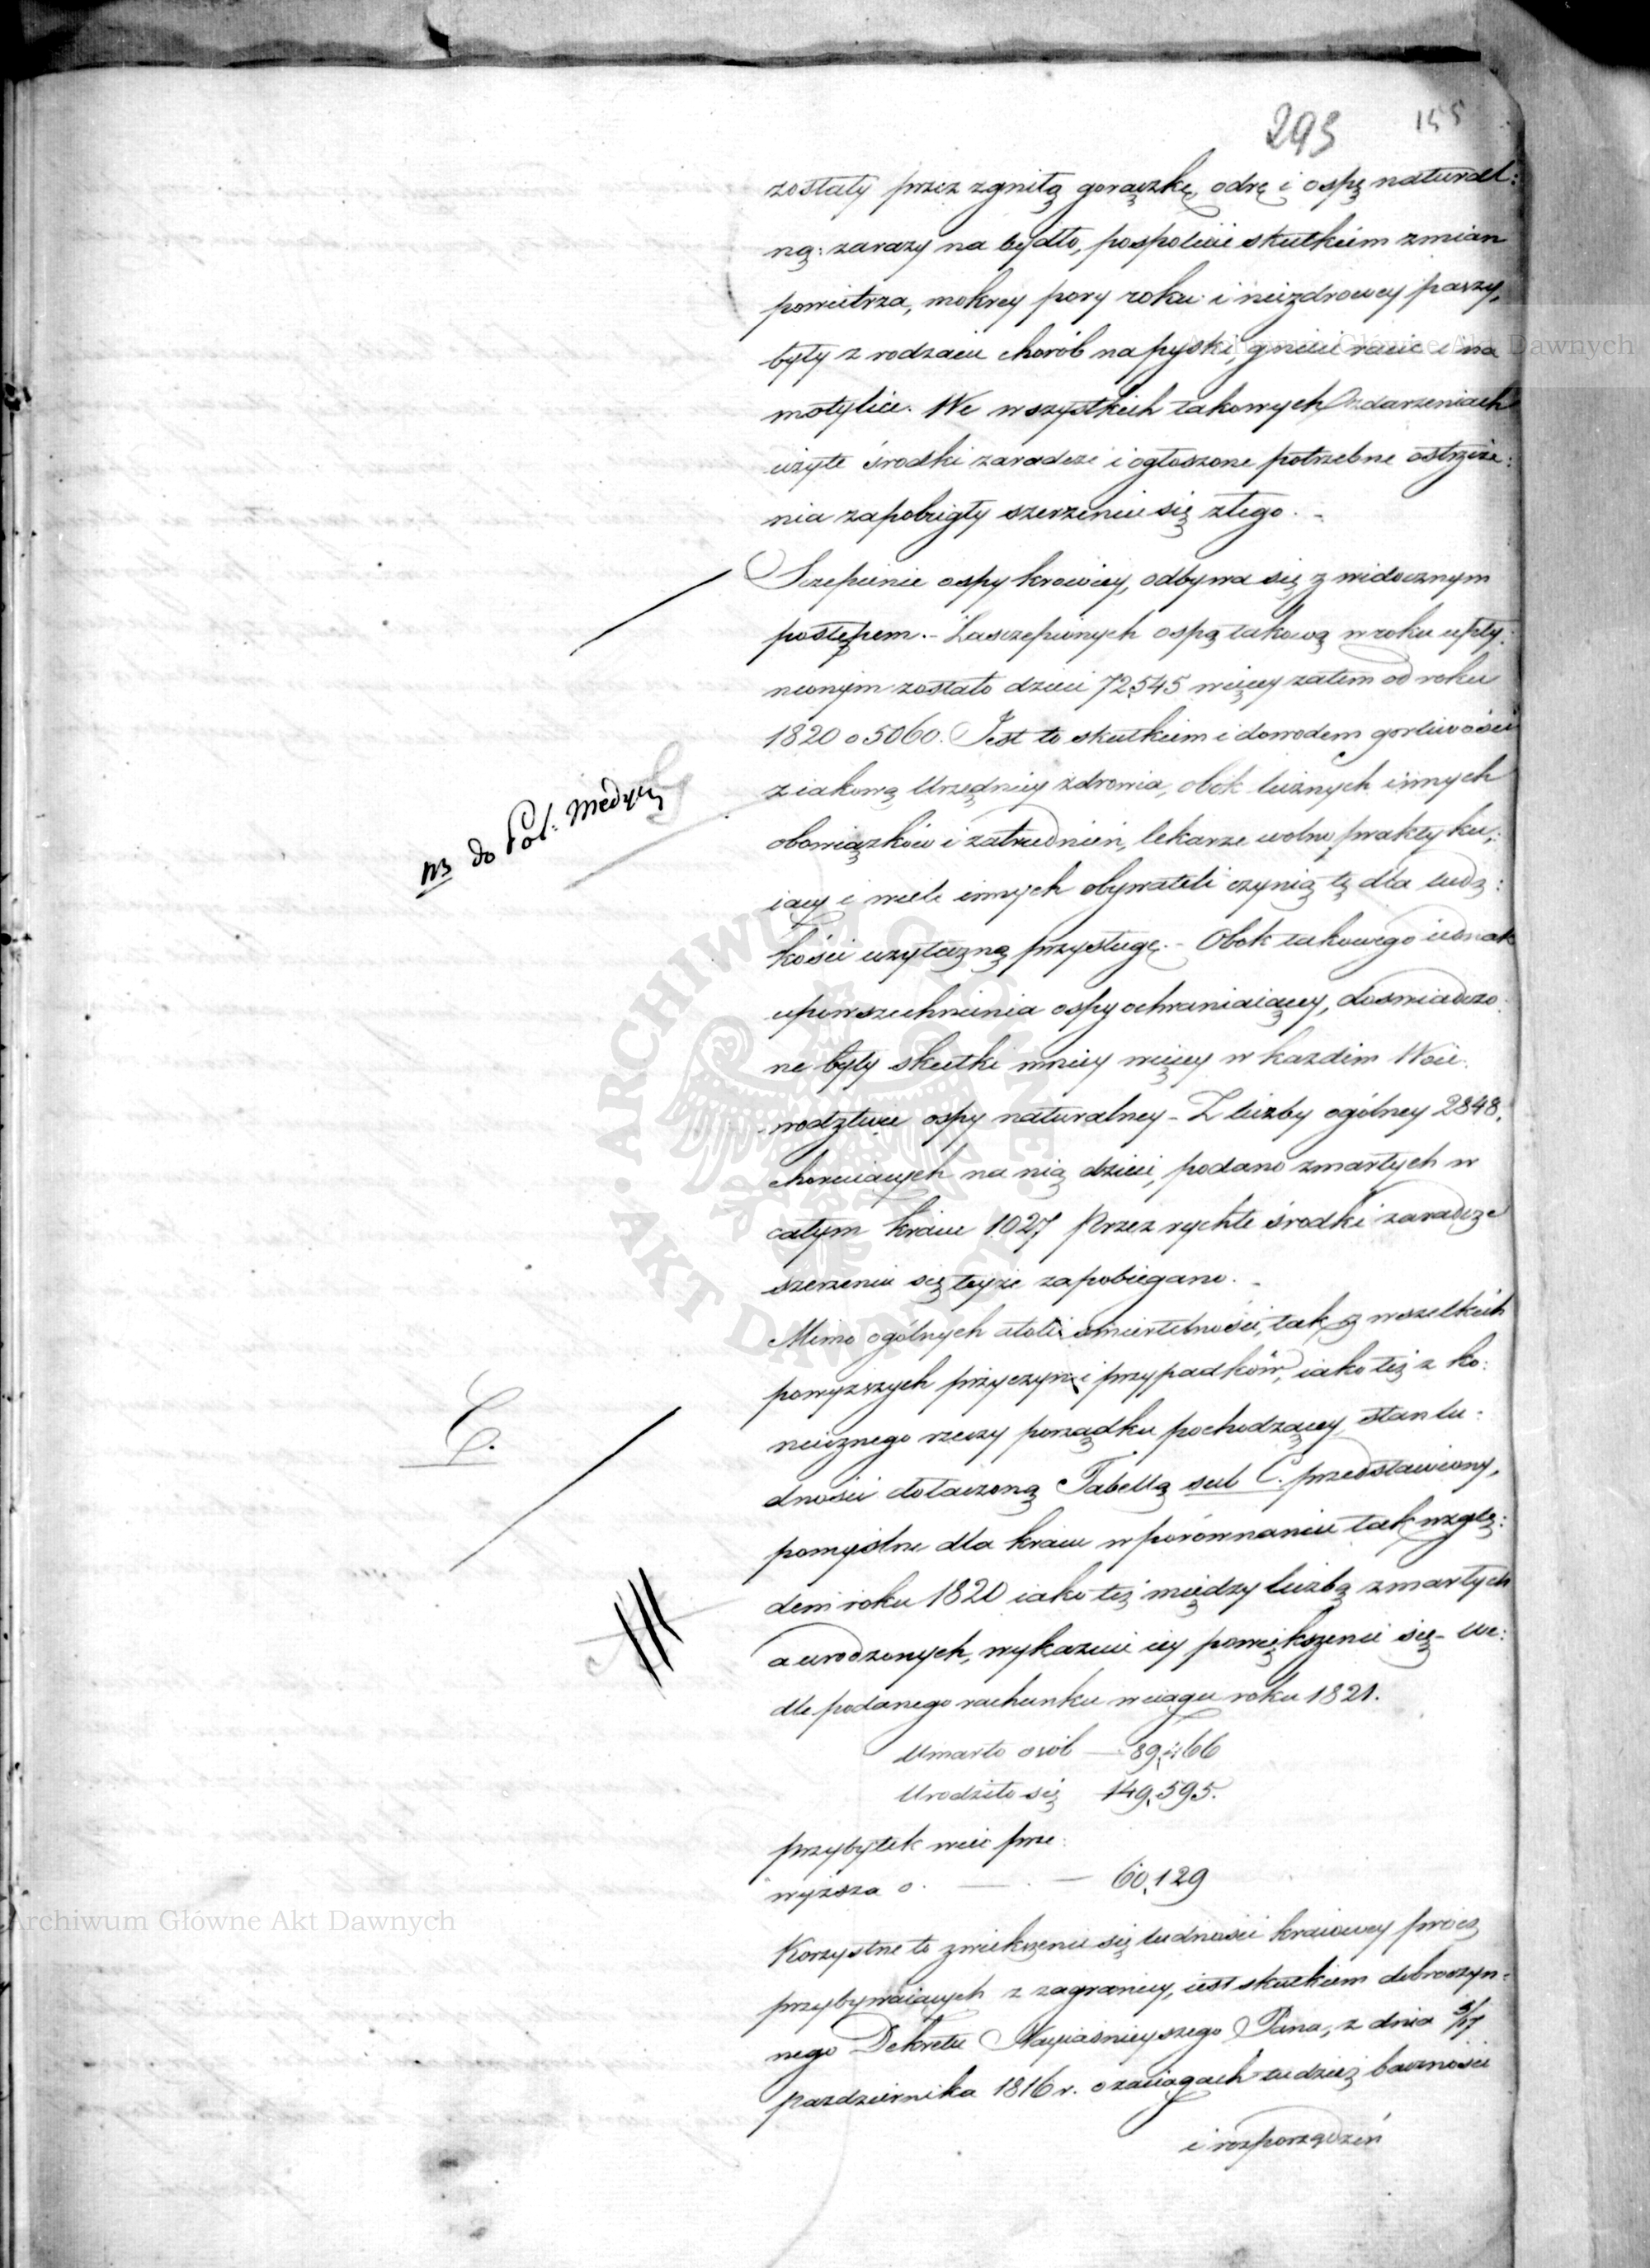 293 155
zostały przez zgniłą gorączkę, odrę i ospę natural:
ną: zarazy na bydło, pospolicie skutkiem zmian
powietrza, mokrey pory roku i niezdrowey paszy,
były z rodzaiu chorób na pyski, gnicie racic i na
motylice. We wszystkich takowych zdarzeniach
użyte środki zaradcze i ogłoszone potrzebne ostrzeże:
nia zapobiegły szerzeniu się złego. -
Szczepienie ospy krowiey, odbywa się z widocznym
postępem. - Zaszczepionych ospą takową w roku upły:
nionym zostało dzieci 72,545 więcey zatem od roku
1820 o 5060. Jest to skutkiem i dowodem gorliwości
z iakową Urzędnicy zdrowia, obok licznych innych
obowiązków i zatrudnień, lekarze wolno praktyku:
iący i wiele innych obywateli czynią tę dla ludz:
kości użyteczną przysługę. - Obok takowego iednak
upowszechnienia ospy ochraniaiącey, doświadczo:
ne były skutki mniey więcey w każdim Woie:
wodztwie ospy naturalney - Z liczby ogólney 2848,
choruiących na nią dzieci, podano zmarłych w
całym kraiu 1027 Przez rychłe środki zaradcze
szerzeniu się teyże zapobiegano. -
Mimo ogólnych atoli śmiertelności, tak z wszelkich
powyższych przyczyn i przypadków, iako też z ko:
niecznego rzeczy porządku pochodzącey, stan lu:
dności dołączoną Tabellą sub C. przedstawiony,
pomyślne dla kraiu w porównaniu tak wzglę:
dem roku 1820 iako też między liczbą zmarłych
a urodzonych, wykazuie iey powiększenie się - we:
dle podanego rachunku w ciągu roku 1821.
Umarło osób — 89,466
Urodziło się 149,595.
przybytek więc prze:
wyższa o. — . — 60,129
Korzystne to zwiększenie się ludności kraiowey prócz
przybywaiących z zagranicy, iest skutkiem dobroczyn:
nego Dekretu Nayiaśnieyszego Pana, z dnia 5/17
października 1816 r. o zaciągach tudzież baczności
i rozporządzeń
NB do Pol: Medycz
C.
Archiwum Główne Akt Dawnych
Archiwum Główne Akt Dawnych
ARCHIWUM GŁÓWNE · AKT DAWNYCH ·